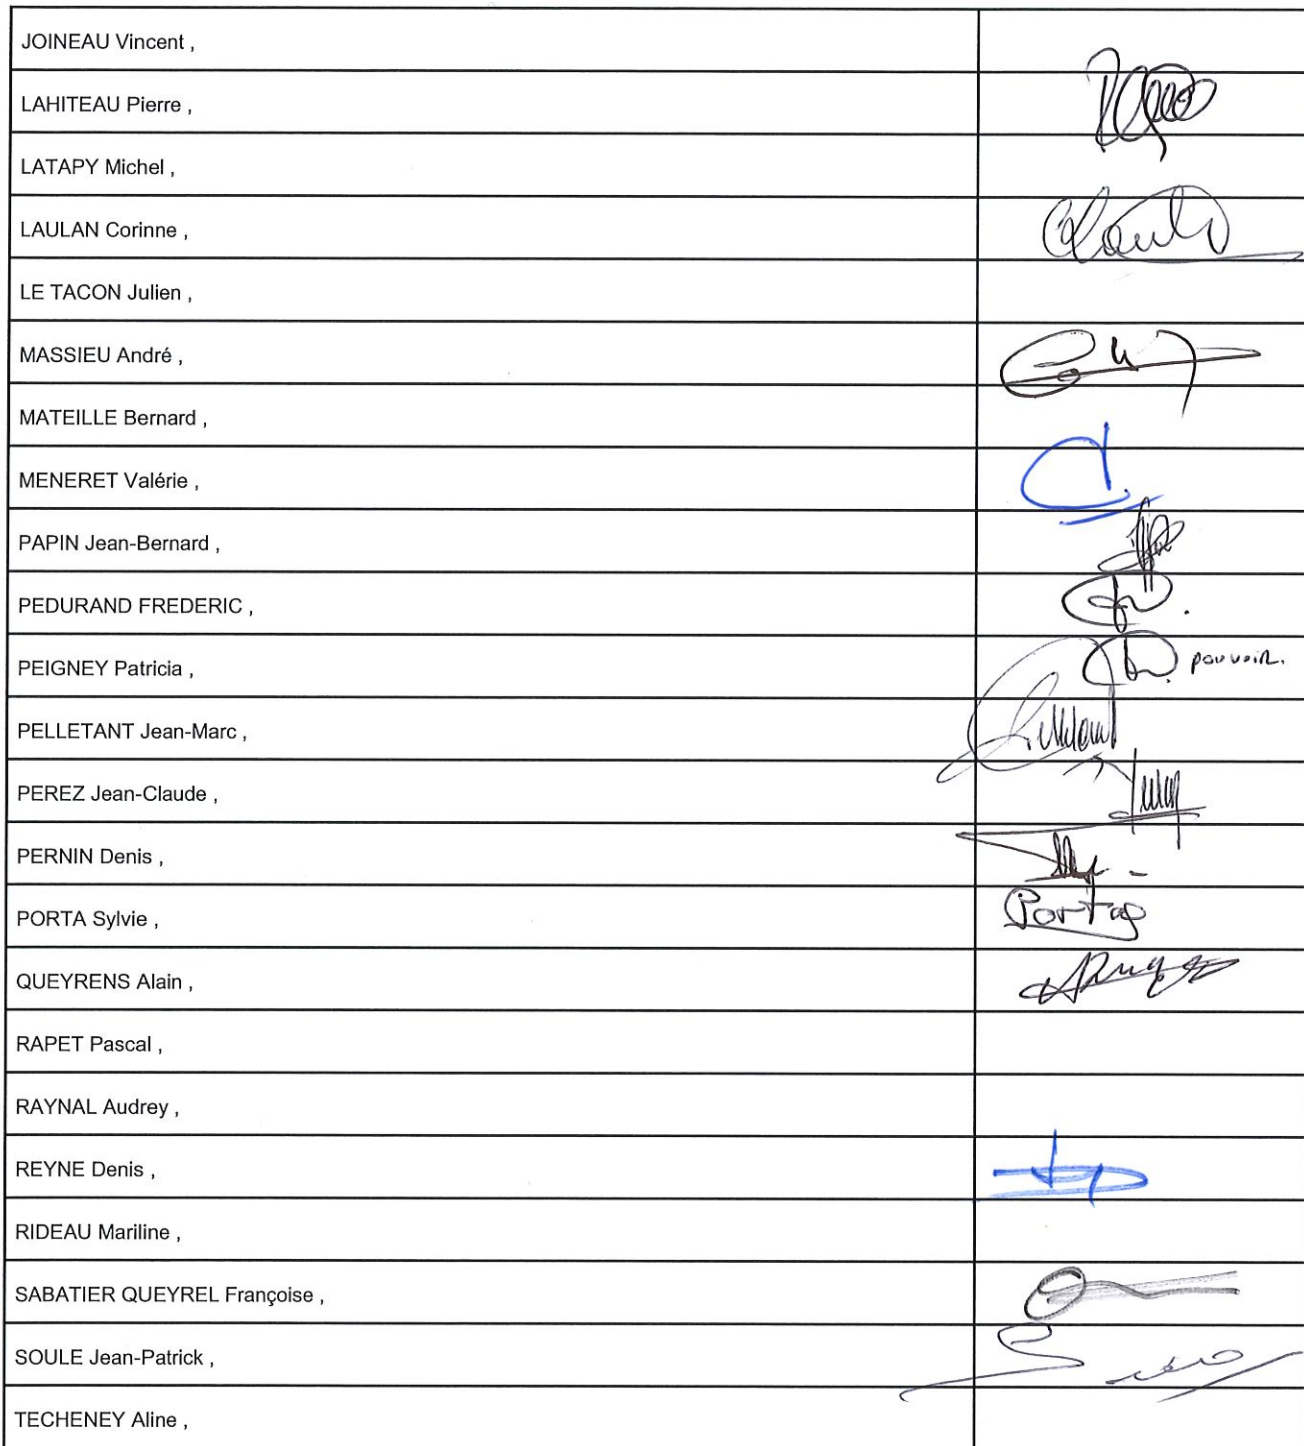 JOINEAU Vincent ,
LAHITEAU Pierre ,
LATAPY Michel ,
LAULAN Corinne ,
LE TACON Julien ,
MASSIEU André ,
MATEILLE Bernard ,
MENERET Valérie ,
PAPIN Jean-Bernard ,
PEDURAND FREDERIC ,
PEIGNEY Patricia , pouvoir.
PELLETANT Jean-Marc ,
PEREZ Jean-Claude ,
PERNIN Denis ,
PORTA Sylvie , Porta
QUEYRENS Alain ,
RAPET Pascal ,
RAYNAL Audrey ,
REYNE Denis ,
RIDEAU Mariline ,
SABATIER QUEYREL Françoise ,
SOULE Jean-Patrick ,
TECHENEY Aline ,